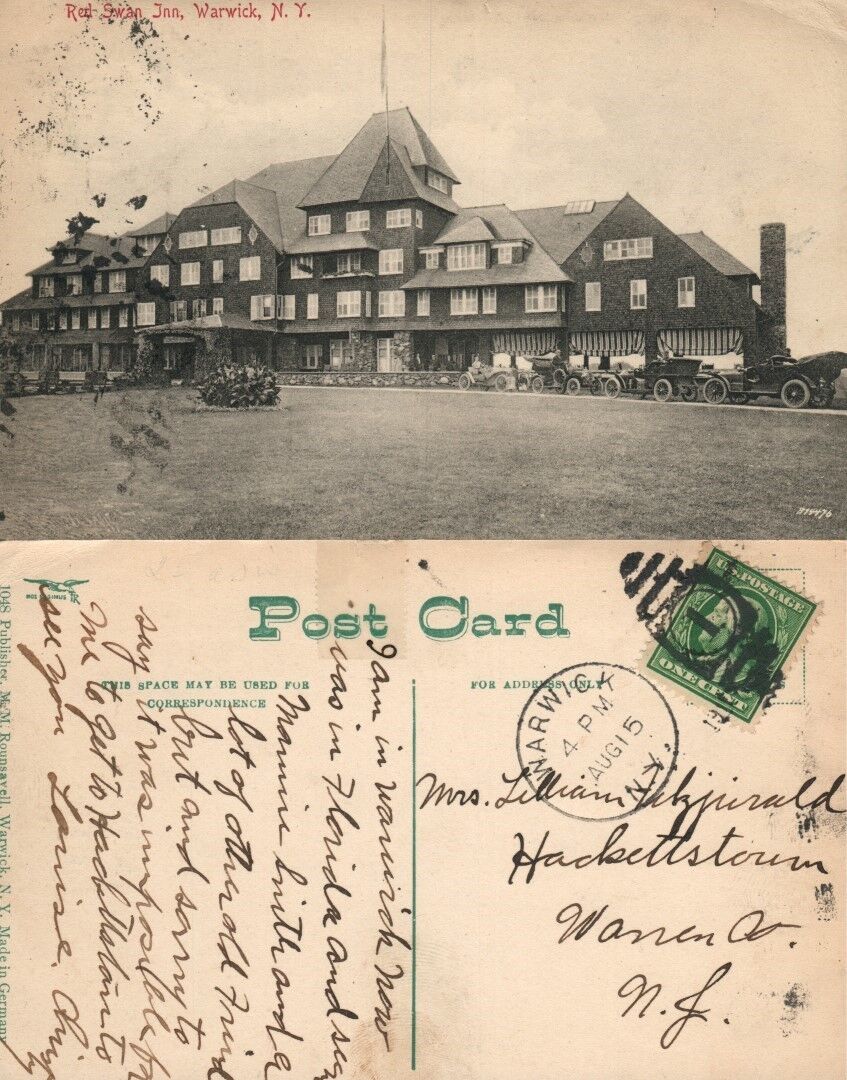 Red Swan Inn, Warwick, N. Y.
Post Card
THIS SPACE MAY BE USED FOR
CORRESPONDENCE
FOR ADDRESS ONLY
U.S. POSTAGE
ONE CENT
1
WARWICK
4 PM
AUG 15
N.Y.
Mrs. Lilliam Fitzjirald
Hackettstown
Warren Co.
N. J.
I am in Warwick Now
was in Florida and
Mammie Smith and a
lot of other old Frind
but and sorry to
say it was imposible for
Me to get to Hackettstown to
see you Louise.
1048 Publisher, M. M. Rounsavell, Warwick, N. Y. Made in Germany